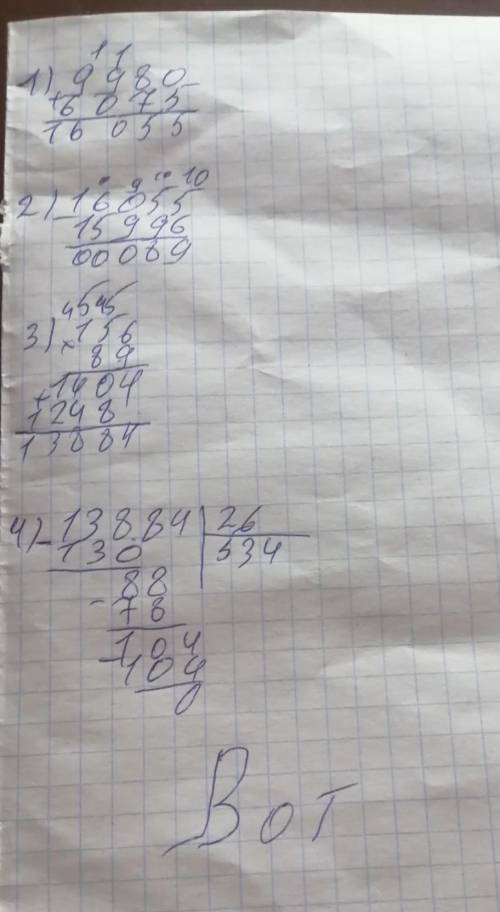 1 1
1) 9980
+6075
16055
9 10 10
2) - 16055
15996
00089
45 45
3) × 156
89
+ 1404
1248
13884
4) - 13884 | 26
130 534
88
- 78
104
- 104
0
Вот